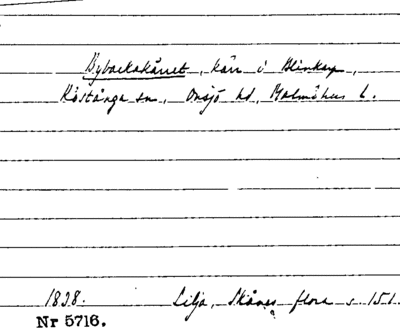 Bybackakärret, kärr i Blinkarp,
Röstånga sn., Onsjö hd, Malmöhus l.
1838. Lilja, Skånes flora s. 151.
Nr 5716.